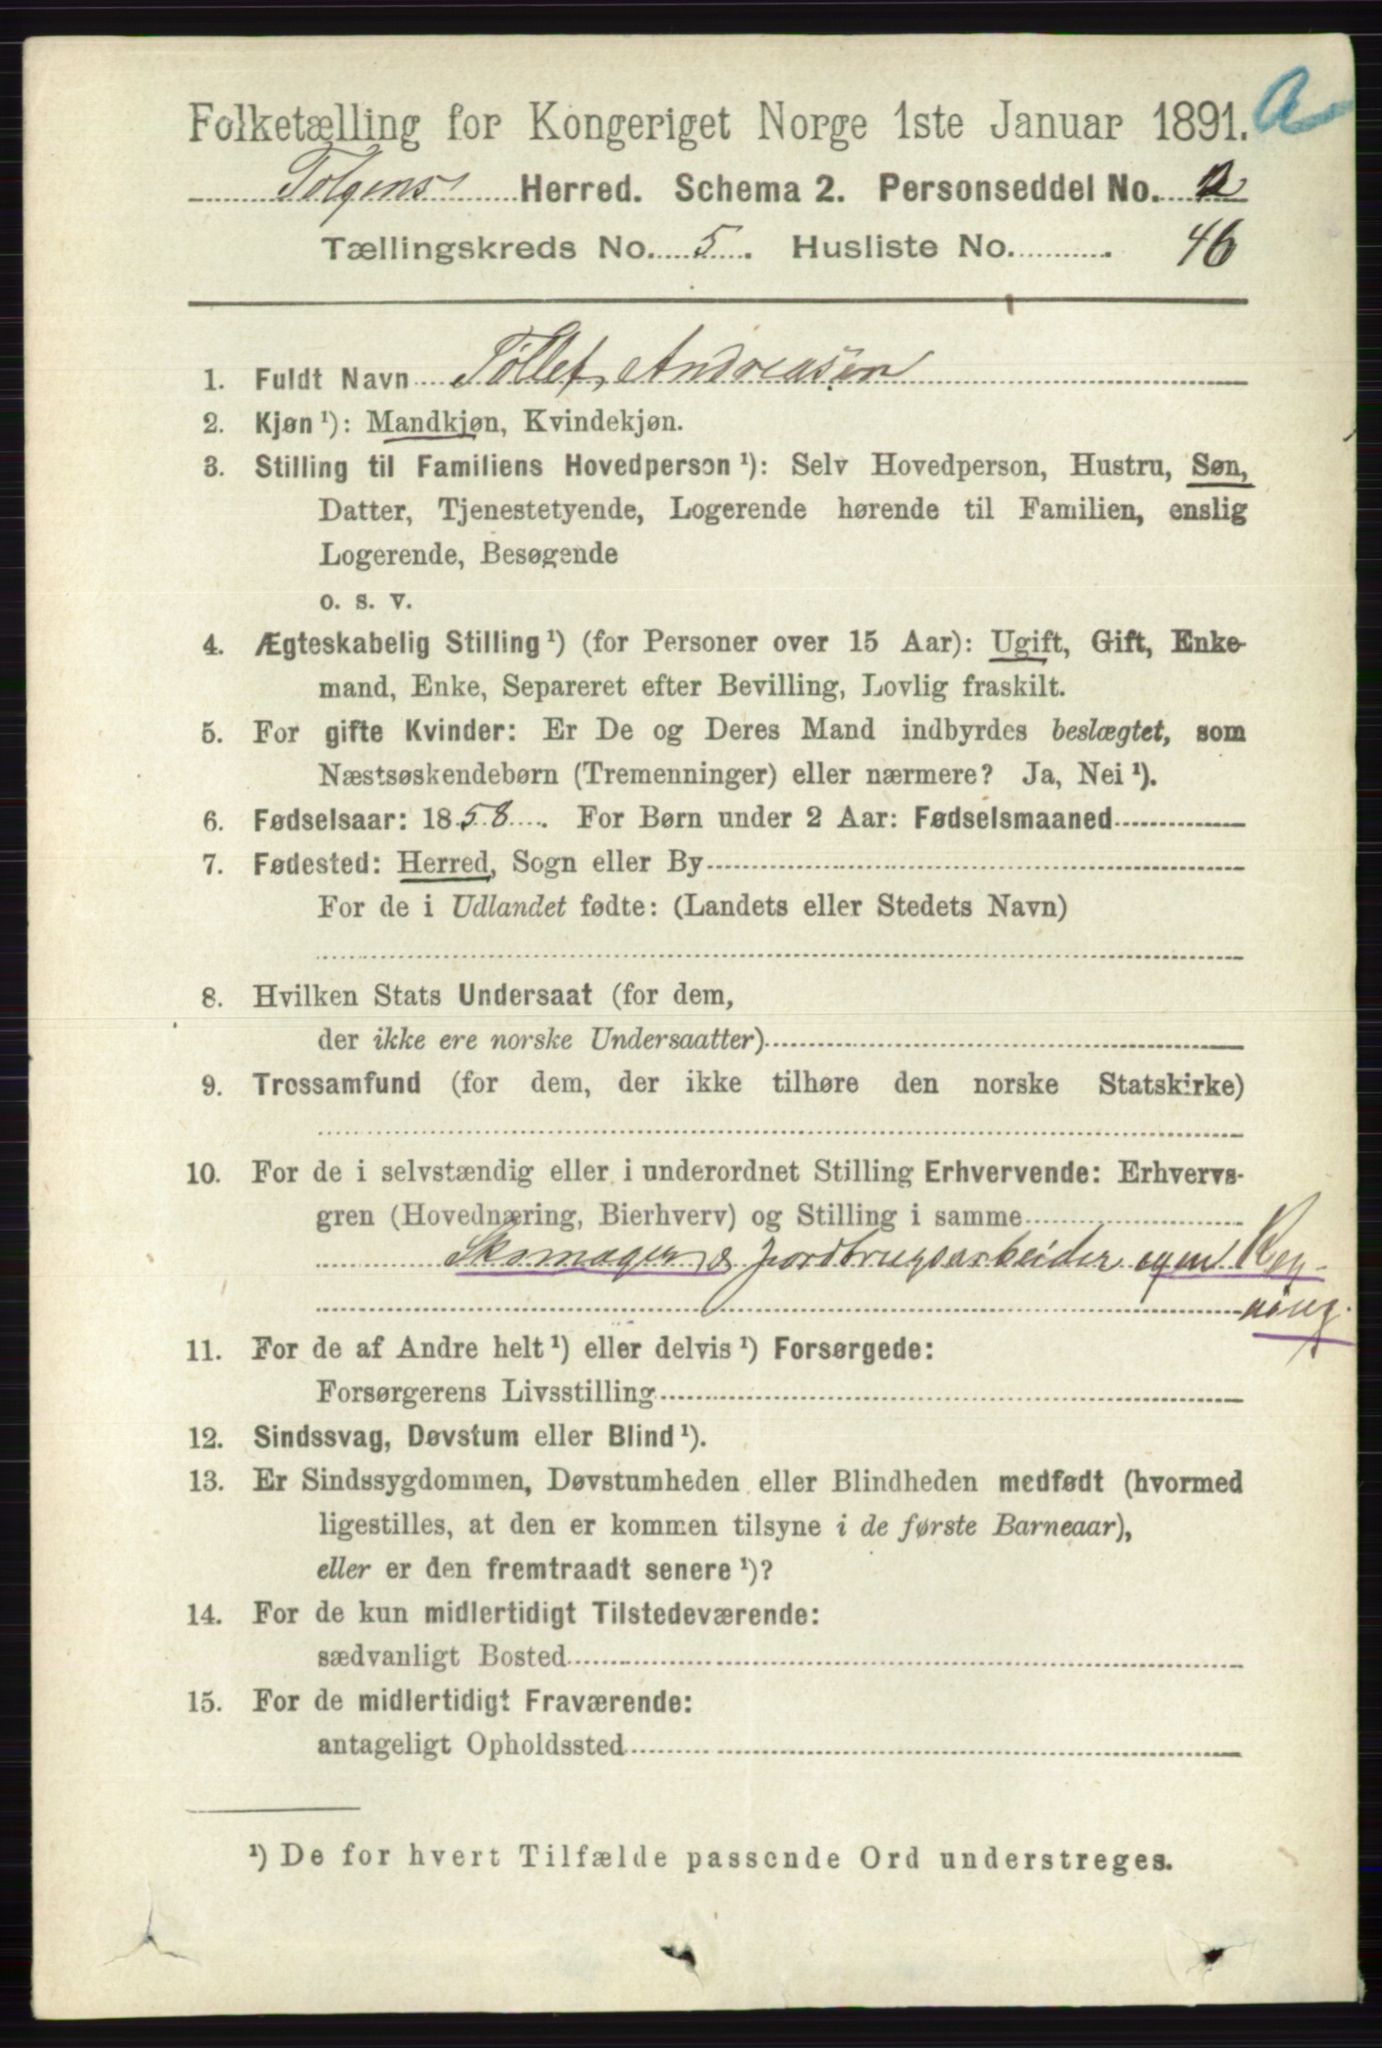 Folketælling for Kongeriget Norge 1ste Januar 1891. a
Tolgens Herred. Schema 2. Personseddel No. 2
Tællingskreds No. 5. Husliste No. 46
1. Fuldt Navn Tøllef Andreasen
2. Kjøn ¹): Mandkjøn, Kvindekjøn.
3. Stilling til Familiens Hovedperson ¹): Selv Hovedperson, Hustru, Søn,
Datter, Tjenestetyende, Logerende hørende til Familien, enslig
Logerende, Besøgende
o. s. v.
4. Ægteskabelig Stilling ¹) (for Personer over 15 Aar): Ugift, Gift, Enke-
mand, Enke, Separeret efter Bevilling, Lovlig fraskilt.
5. For gifte Kvinder: Er De og Deres Mand indbyrdes beslægtet, som
Næstsøskendebørn (Tremenninger) eller nærmere? Ja, Nei ¹).
6. Fødselsaar: 1858. For Børn under 2 Aar: Fødselsmaaned
7. Fødested: Herred, Sogn eller By
For de i Udlandet fødte: (Landets eller Stedets Navn)
8. Hvilken Stats Undersaat (for dem,
der ikke ere norske Undersaatter)
9. Trossamfund (for dem, der ikke tilhøre den norske Statskirke)
10. For de i selvstændig eller i underordnet Stilling Erhvervende: Erhvervs-
gren (Hovednæring, Bierhverv) og Stilling i samme
Skomager & jordbrugsarbeider egen Reg-
ning.
11. For de af Andre helt ¹) eller delvis ¹) Forsørgede:
Forsørgerens Livsstilling
12. Sindssvag, Døvstum eller Blind ¹).
13. Er Sindssygdommen, Døvstumheden eller Blindheden medfødt (hvormed
ligestilles, at den er kommen tilsyne i de første Barneaar),
eller er den fremtraadt senere ¹)?
14. For de kun midlertidigt Tilstedeværende:
sædvanligt Bosted
15. For de midlertidigt Fraværende:
antageligt Opholdssted
¹) De for hvert Tilfælde passende Ord understreges.